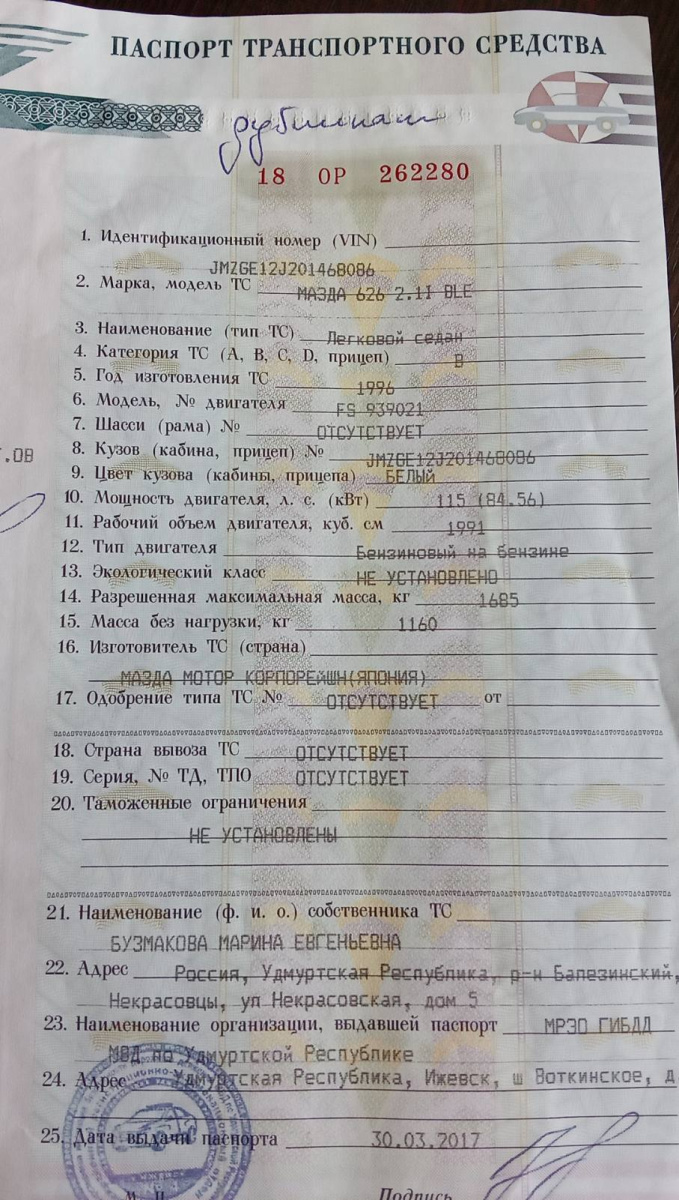 ПАСПОРТ ТРАНСПОРТНОГО СРЕДСТВА
дубликат
18 ОР 262280
1. Идентификационный номер (VIN)
JMZGE12J201468086
2. Марка, модель ТС МАЗДА 626 2.1I BLE
3. Наименование (тип ТС) Легковой седан
4. Категория ТС (А, В, С, D, прицеп) В
5. Год изготовления ТС 1996
6. Модель, № двигателя FS 939021
7. Шасси (рама) № ОТСУТСТВУЕТ
8. Кузов (кабина, прицеп) № JMZGE12J201468086
9. Цвет кузова (кабины, прицепа) БЕЛЫЙ
10. Мощность двигателя, л. с. (кВт) 115 (84.56)
11. Рабочий объем двигателя, куб. см 1991
12. Тип двигателя Бензиновый на бензине
13. Экологический класс НЕ УСТАНОВЛЕНО
14. Разрешенная максимальная масса, кг 1685
15. Масса без нагрузки, кг 1160
16. Изготовитель ТС (страна)
МАЗДА МОТОР КОРПОРЕЙШН(ЯПОНИЯ)
17. Одобрение типа ТС № ОТСУТСТВУЕТ от
18. Страна вывоза ТС ОТСУТСТВУЕТ
19. Серия, № ТД, ТПО ОТСУТСТВУЕТ
20. Таможенные ограничения
НЕ УСТАНОВЛЕНЫ
21. Наименование (ф. и. о.) собственника ТС
БУЗМАКОВА МАРИНА ЕВГЕНЬЕВНА
22. Адрес Россия, Удмуртская Республика, р-н Балезинский,
Некрасовцы, ул Некрасовская, дом 5
23. Наименование организации, выдавшей паспорт МРЭО ГИБДД
МВД по Удмуртской Республике
24. Адрес Удмуртская Республика, Ижевск, ш Воткинское, д
25. Дата выдачи паспорта 30.03.2017
М. П. Подпись